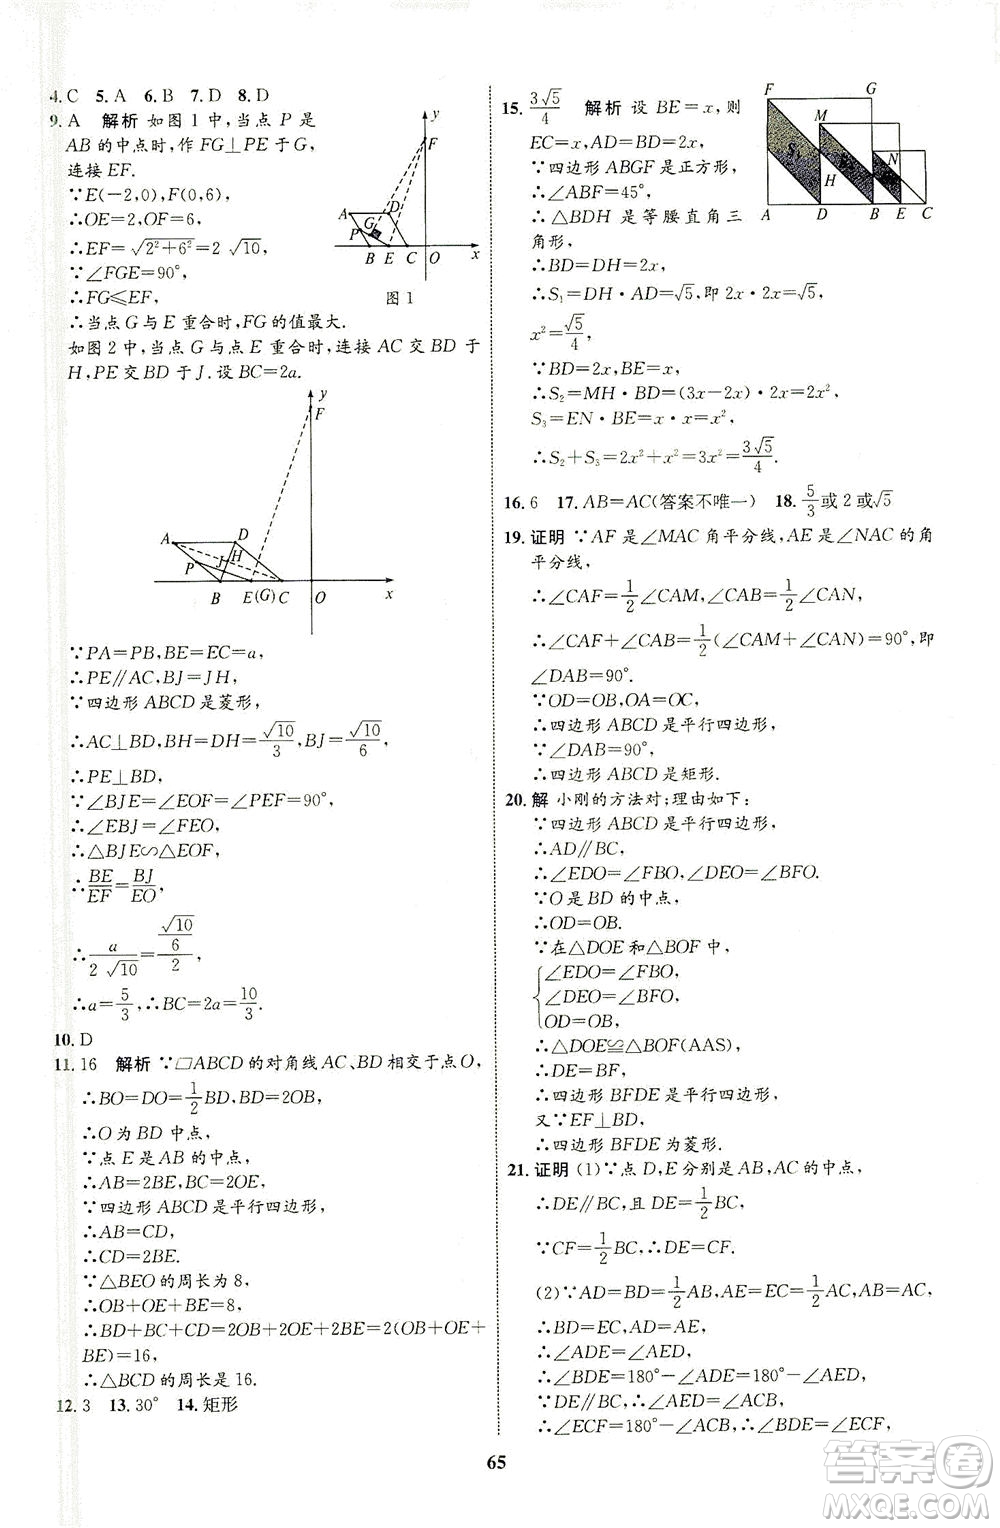 4. C 5. A 6. B 7. D 8. D
9. A 解析 如图 1 中,当点 P 是
AB 的中点时,作 FG⊥PE 于 G,
连接 EF.
∵E(-2,0),F(0,6),
∴OE=2,OF=6,
∴EF=√(2²+6²)=2√10,
∵∠FGE=90°,
∴FG≤EF,
∴当点 G 与 E 重合时,FG 的值最大.
y
F
A
D
G
P
B E C O x
图 1
如图 2 中,当点 G 与点 E 重合时,连接 AC 交 BD 于
H,PE 交 BD 于 J.设 BC=2a.
y
F
A
D
J H
P
B E(G) C O x
∵PA=PB,BE=EC=a,
∴PE∥AC,BJ=JH,
∵四边形 ABCD 是菱形,
∴AC⊥BD,BH=DH=√10/3,BJ=√10/6,
∴PE⊥BD,
∵∠BJE=∠EOF=∠PEF=90°,
∴∠EBJ=∠FEO,
∴△BJE∽△EOF,
∴BE/EF=BJ/EO,
∴a/(2√10)=(√10/6)/2,
∴a=5/3,∴BC=2a=10/3.
10. D
11. 16 解析 ∵▱ABCD 的对角线 AC、BD 相交于点 O,
∴BO=DO=1/2BD,BD=2OB,
∴O 为 BD 中点,
∵点 E 是 AB 的中点,
∴AB=2BE,BC=2OE,
∵四边形 ABCD 是平行四边形,
∴AB=CD,
∴CD=2BE.
∵△BEO 的周长为 8,
∴OB+OE+BE=8,
∴BD+BC+CD=2OB+2OE+2BE=2(OB+OE+
BE)=16,
∴△BCD 的周长是 16.
12. 3 13. 30° 14. 矩形
15. 3√5/4 解析 设 BE=x,则
EC=x,AD=BD=2x,
∵四边形 ABGF 是正方形,
∴∠ABF=45°,
∴△BDH 是等腰直角三
角形,
∴BD=DH=2x,
∴S₁=DH·AD=√5,即 2x·2x=√5,
x²=√5/4
F G
M
N
S₁
H
A D B E C
∵BD=2x,
∴S₂=MH·BD=(3x-2x)·2x=2x²,
S₃=EN·BE=x·x=x²,
∴S₂+S₃=2x²+x²=3√5/4.
16. 6 17. AB=AC(答案不唯一) 18. 5/3或 2 或√5
19. 证明 ∵AF 是∠MAC 角平分线,AE 是∠NAC 的角
平分线,
∴∠CAF=1/2∠CAM,∠CAB=1/2∠CAN,
∴∠CAF+∠CAB=1/2(∠CAM+∠CAN)=90°,即
∠DAB=90°.
∵OD=OB,OA=OC,
∴四边形 ABCD 是平行四边形,
∵∠DAB=90°,
∴四边形 ABCD 是矩形.
20. 解 小刚的方法对;理由如下:
∵四边形 ABCD 是平行四边形,
∴AD∥BC,
∴∠EDO=∠FBO,∠DEO=∠BFO,
∵O 是 BD 的中点,
∴OD=OB.
∵在△DOE 和△BOF 中,
∠EDO=∠FBO,
∠DEO=∠BFO,
OD=OB,
∴△DOE≌△BOF(AAS),
∴DE=BF,
∴四边形 BFDE 是平行四边形,
又∵EF⊥BD,
∴四边形 BFDE 为菱形.
21. 证明 (1)∵点 D,E 分别是 AB,AC 的中点,
∴DE∥BC,且 DE=1/2BC,
∵CF=1/2BC,∴DE=CF.
(2)∵AD=BD=1/2AB,AE=EC=1/2AC,AB=AC,
∴BD=EC,AD=AE,
∴∠ADE=∠AED,
∴∠BDE=180°-∠ADE=180°-∠AED,
∵DE∥BC,∴∠AED=∠ACB,
∴∠ECF=180°-∠ACB,∴∠BDE=∠ECF,
65
答案圈
MXQE.COM